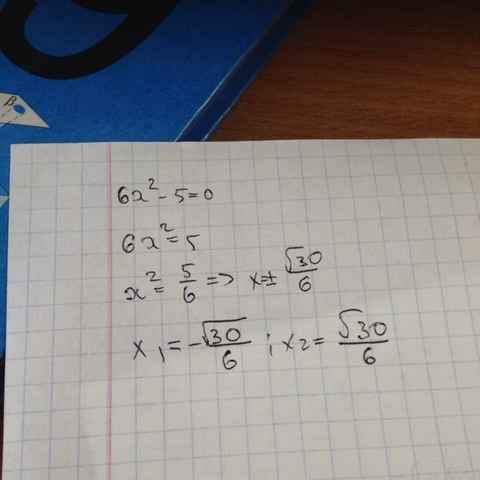 β
6x² - 5 = 0
6x² = 5
x² = 5/6 => x = ± √30/6
x₁ = -√30/6 ; x₂ = √30/6